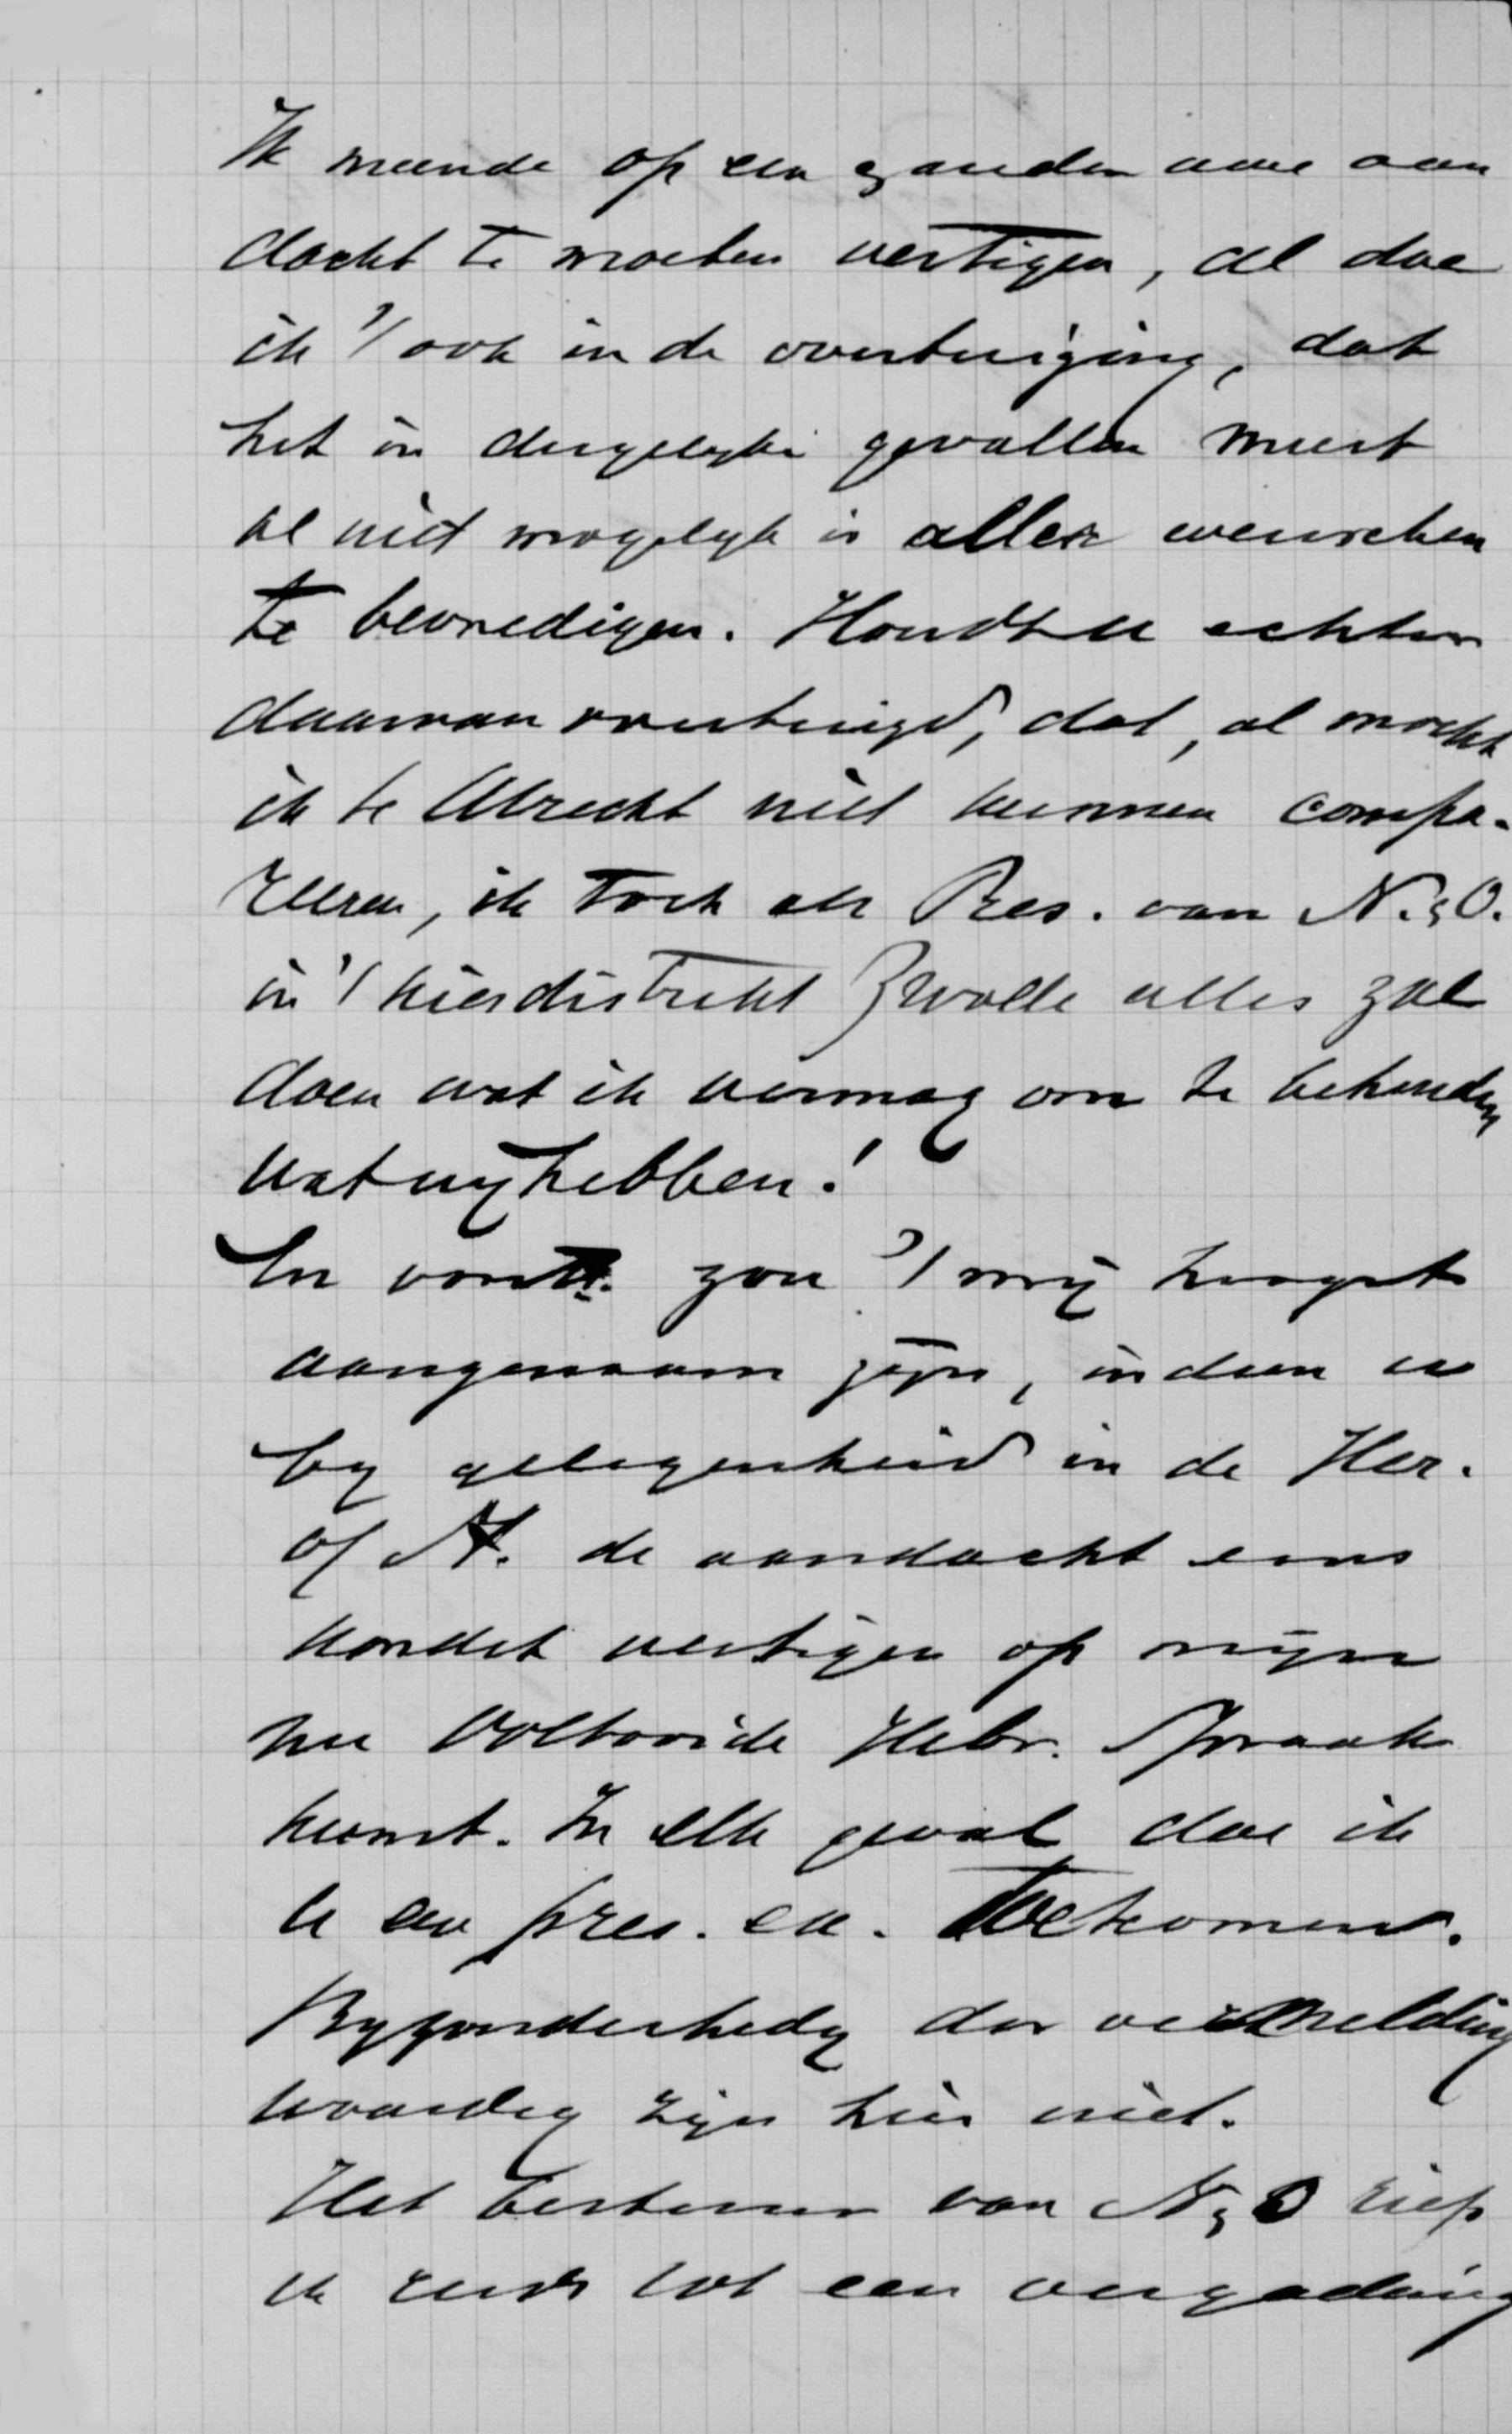 Ik meende op een en ander uwe aan
dacht te moeten vestigen, al doe
ik 't ook in de overtuiging, dat
het in dergelyke gevallen meest
al niet mogelyk is aller wenschen
te bevredigen. Houdt u echter
daarvan overtuigd, dat, al mocht
ik te Utrecht niet kunnen compa-
reeren, ik toch als Pres. van N. & O.
in 't kiesdistrikt Zwolle alles zal
doen wat ik vermag om te behouden
wat wy hebben!
En zou 't mij hoogst
aangenaam zijn, indien u
by gelegenheid in de Her.
of St. de aandacht eens
wondet vestigen op mijne
nu voltooide Hebr. Spraak
kunst. In elk geval doe ik
u een pres. ex. toekomen.
Byzonderheden der vermelding
waardig zijn hier niet.
Het bestuur van N & O riep
ik reeds tot een vergadering